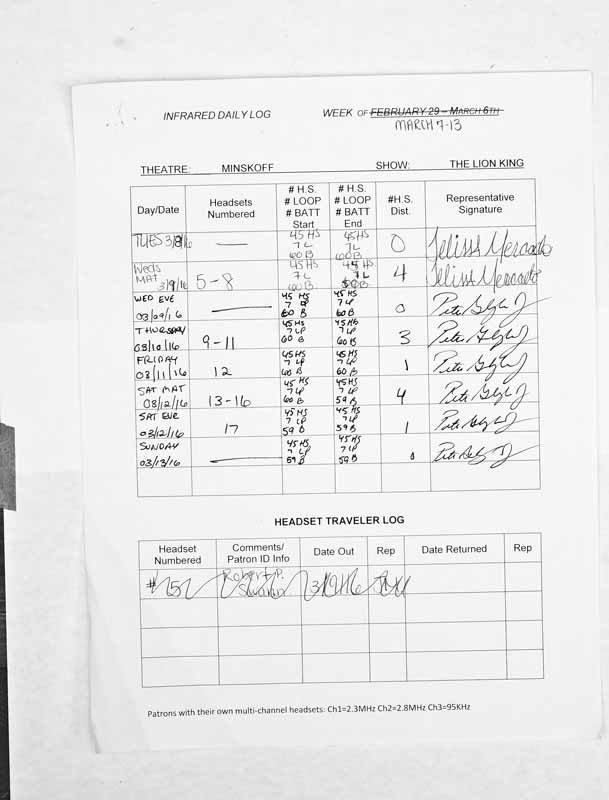 INFRARED DAILY LOG WEEK OF FEBRUARY 29 – MARCH 6TH
MARCH 7-13
THEATRE: MINSKOFF SHOW: THE LION KING
Day/Date Headsets Numbered # H.S. # LOOP # BATT Start # H.S. # LOOP # BATT End #H.S. Dist. Representative Signature
TUES 3/8/16 — 45 HS 7 L 60 B 45 HS 7L 60 B 0 Jelissa Mercado
Weds MAT 3/9/16 5-8 45 HS 7 L 60 B 45 HS 7 L 4 Jelissa Mercado
WED EVE 03/09/16 — 45 HS 7 60 B 45 HS 7 LP 60 B 0
THURSDAY 03/10/16 9-11 45 HS 7 LP 60 B 45 HS 7 LP 60 B 3
FRIDAY 03/11/16 12 45 HS 7 LP 60 B 45 HS 7 LP 60 B 1
SAT MAT 03/12/16 13-16 45 HS 7 LP 60 B 45 HS 7 LP 59 B 4
SAT EVE 03/12/16 17 45 HS 7 LP 59 B 45 HS 7 LP 59 B 1
SUNDAY 03/13/16 — 45 HS 7 LP 59 B 45 HS 7 LP 59 B 0
HEADSET TRAVELER LOG
Headset Numbered Comments/ Patron ID Info Date Out Rep Date Returned Rep
Robert P. 3/9/16
Patrons with their own multi-channel headsets: Ch1=2.3MHz Ch2=2.8MHz Ch3=95KHz